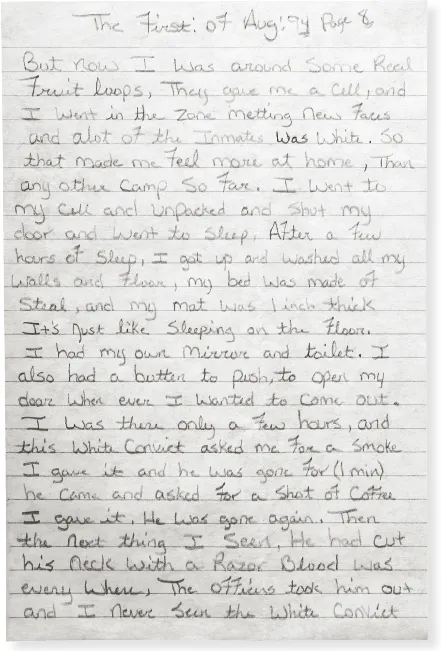 The First: of Aug: 94 Page 8
But now I was around Some Real
Fruit loops, They gave me a Cell, and
I Went in the Zone metting New Faces
and alot of the Inmates Was White. So
that made me Feel more at home, Than
any other Camp So Far. I Went to
my Cell and Unpacked and Shut my
door and Went to Sleep, After a Few
hours of Sleep, I got up and Washed all my
Walls and Floor, my bed was made of
Steal, and my mat was 1 inch thick
It's Just like Sleeping on the Floor.
I had my own Mirrow and toilet. I
also had a butten to Push, to open my
door When ever I Wanted to Come out.
I Was there only a Few hours, and
this White Convict asked me For a Smoke
I gave it and he was gone For (1 min)
he Came and asked For a Shot of Coffee
I gave it, He Was gone again. Then
the Next thing I Seen, He had Cut
his Neck With a Razor Blood Was
every Where, The officers took him out
and I Never Seen the White Convict